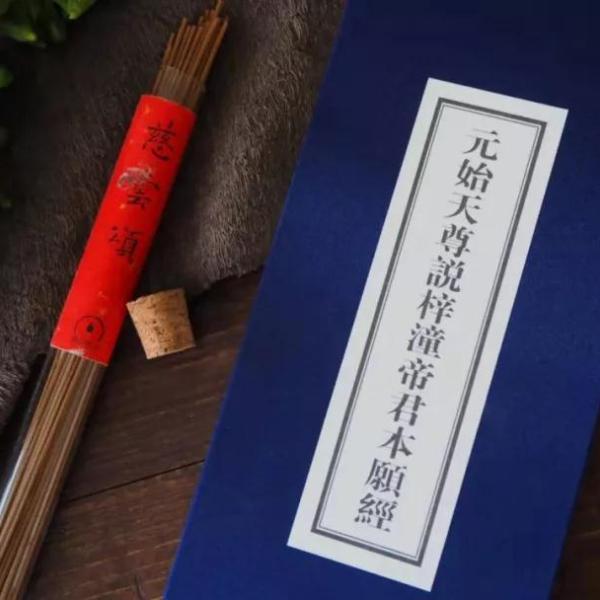 慈雲頌
元始天尊説梓潼帝君本願經